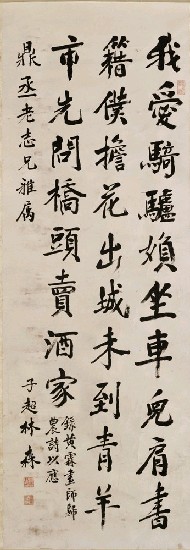 我愛騎驢嬾坐車兒肩書
籍僕擔花出城未到青羊
市先問橋頭賣酒家
鼎丞老志兄雅屬
錄黃霖生師歸
農詩以應
子超林森